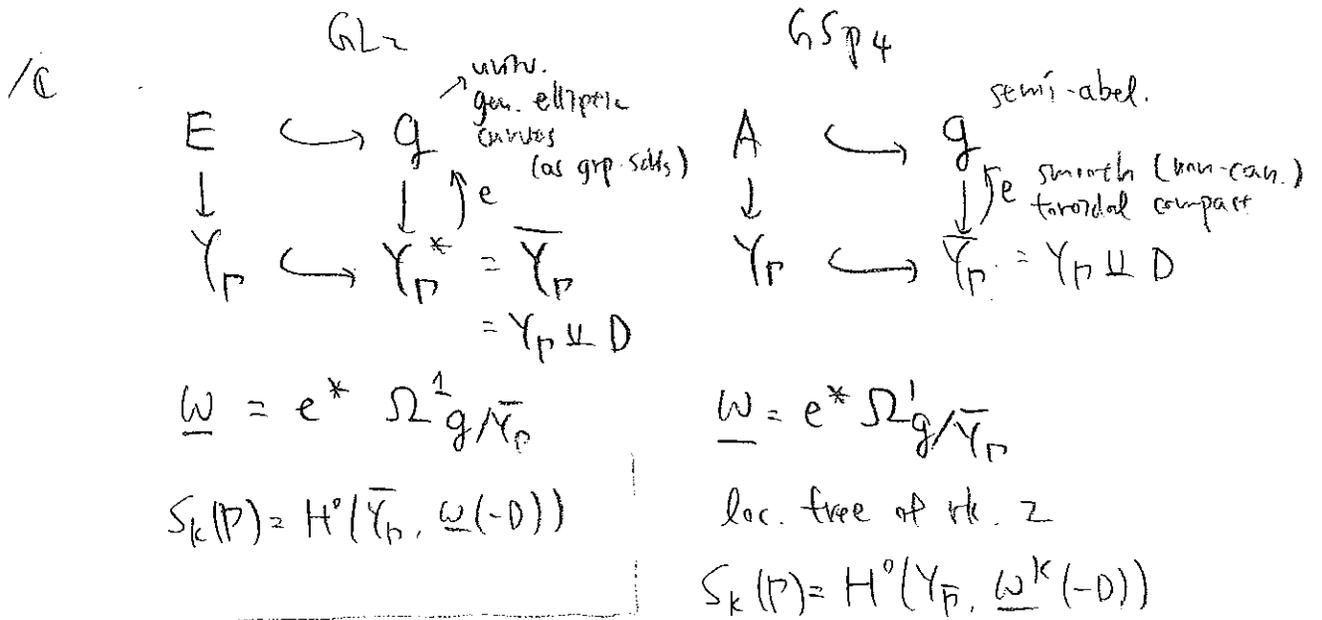 /ℂ
GL₂
univ.
gen. elliptic
curves
(as grp. schs)
E ↪ 𝒢
↓ ↓ e
Y_Γ ↪ Y_Γ^* = \overline{Y}_Γ
= Y_Γ ⊔ D
\underline{ω} = e^* Ω^1_{𝒢/\overline{Y}_Γ}
S_k(Γ) = H^0(\overline{Y}_Γ, \underline{ω}(-D))
GSp₄
semi-abel.
A ↪ 𝒢
↓ ↓ e smooth (non-can.)
toroidal compact
Y_Γ ↪ \overline{Y}_Γ = Y_Γ ⊔ D
\underline{ω} = e^* Ω^1_{𝒢/\overline{Y}_Γ}
loc. free of rk. 2
S_k(Γ) = H^0(Y_{\overline{Γ}}, \underline{ω}^k(-D))